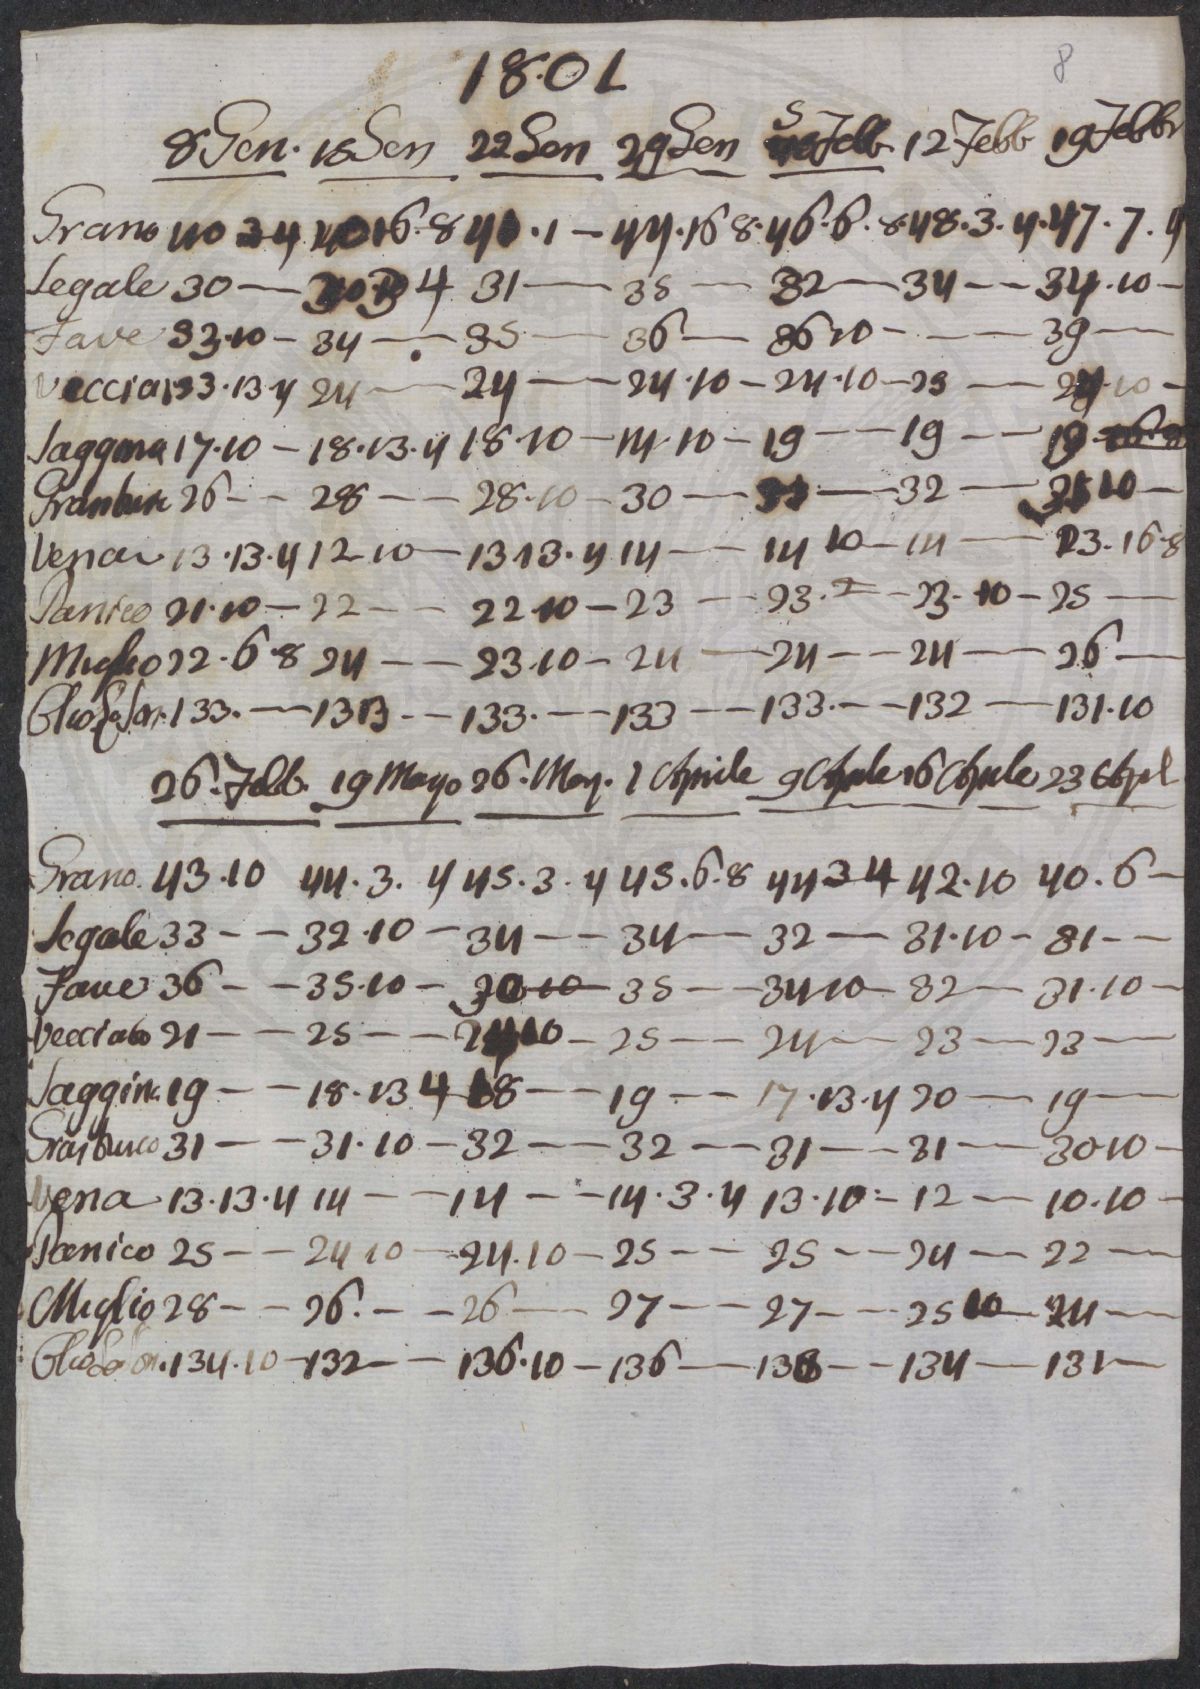 8
1801
8 Gen. 15 Gen 22 Gen 29 Gen 5 Febb 12 Febb 19 Febbr
Grano 40 3 4 40 16.8 41.1 — 44.16 8. 46.6.8. 48.3.4. 47.7.4
Segale 30 — 4 31 — 35 — 32 — 34 — — 34.10 —
Fave 33.10 — 34 — 35 — 36 — 36 10 — — 39 —
Vecciai 23.13.4 24 — 24 — 24.10 — 24.10 — 25 — 10 —
Saggina 17.10 — 18.13.4 18.10 — 14.10 — 19 — — 19 — — 19
Granturc 26 — — 28 — — 28.10 — 30 — — 32 — 10 —
Vena 13.13.4 12 10 — 13 13.4 14 — 14 10 — 14 — 13.16.8
Panico 21.10 — 22 — — 22 10 — 23 — 23. — 23.10 — 25 —
Miglio 22.6.8 24 — — 23.10 — 24 — 24 — — 24 — — 26 —
Olio 133. — 133 — — 133. — 133 — — 133. — 132 — 131.10
26. Febb. 19 Marzo 26. Marz. 1 Aprile 9 Aprile 16 Aprile 23 Apl
Grano. 43.10 44.3.4 45.3.4 45.6.8 44 3 4 42.10 40.6 —
Segale 33 — — 32.10 — 34 — — 34 — 32 — 31.10 — 31 — —
Fave 36 — — 35.10 — 35 — — 34 10 — 32 — 31.10 —
Vecciato 21 — — 25 — — 10 — 25 — — 24 — — 23 — 23 —
Saggina 19 — — 18.13 4 18 — — 19 — — 17.13.4 20 — 19 —
Granturco 31 — — 31.10 — 32 — — 32 — — 31 — — 31 — 30 10 —
Vena 13.13.4 14 — — 14 — — 14.3.4 13.10 — 12 — 10.10 —
Panico 25 — — 24 10 — 24.10 — 25 — — 25 — — 24 — 22 —
Miglio 28 — — 26. — — 26 — 27 — — 27 — — 25 10 — 24 —
Olio 134.10 — 132 — — 136.10 — 136 — — 134 — 131 —